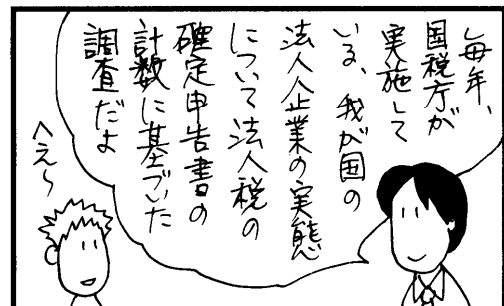 毎年、
国税庁が
実施して
いる、我が国の
法人企業の実態
について法人税の
確定申告書の
計数に基づいた
調査だよ
へえ〜